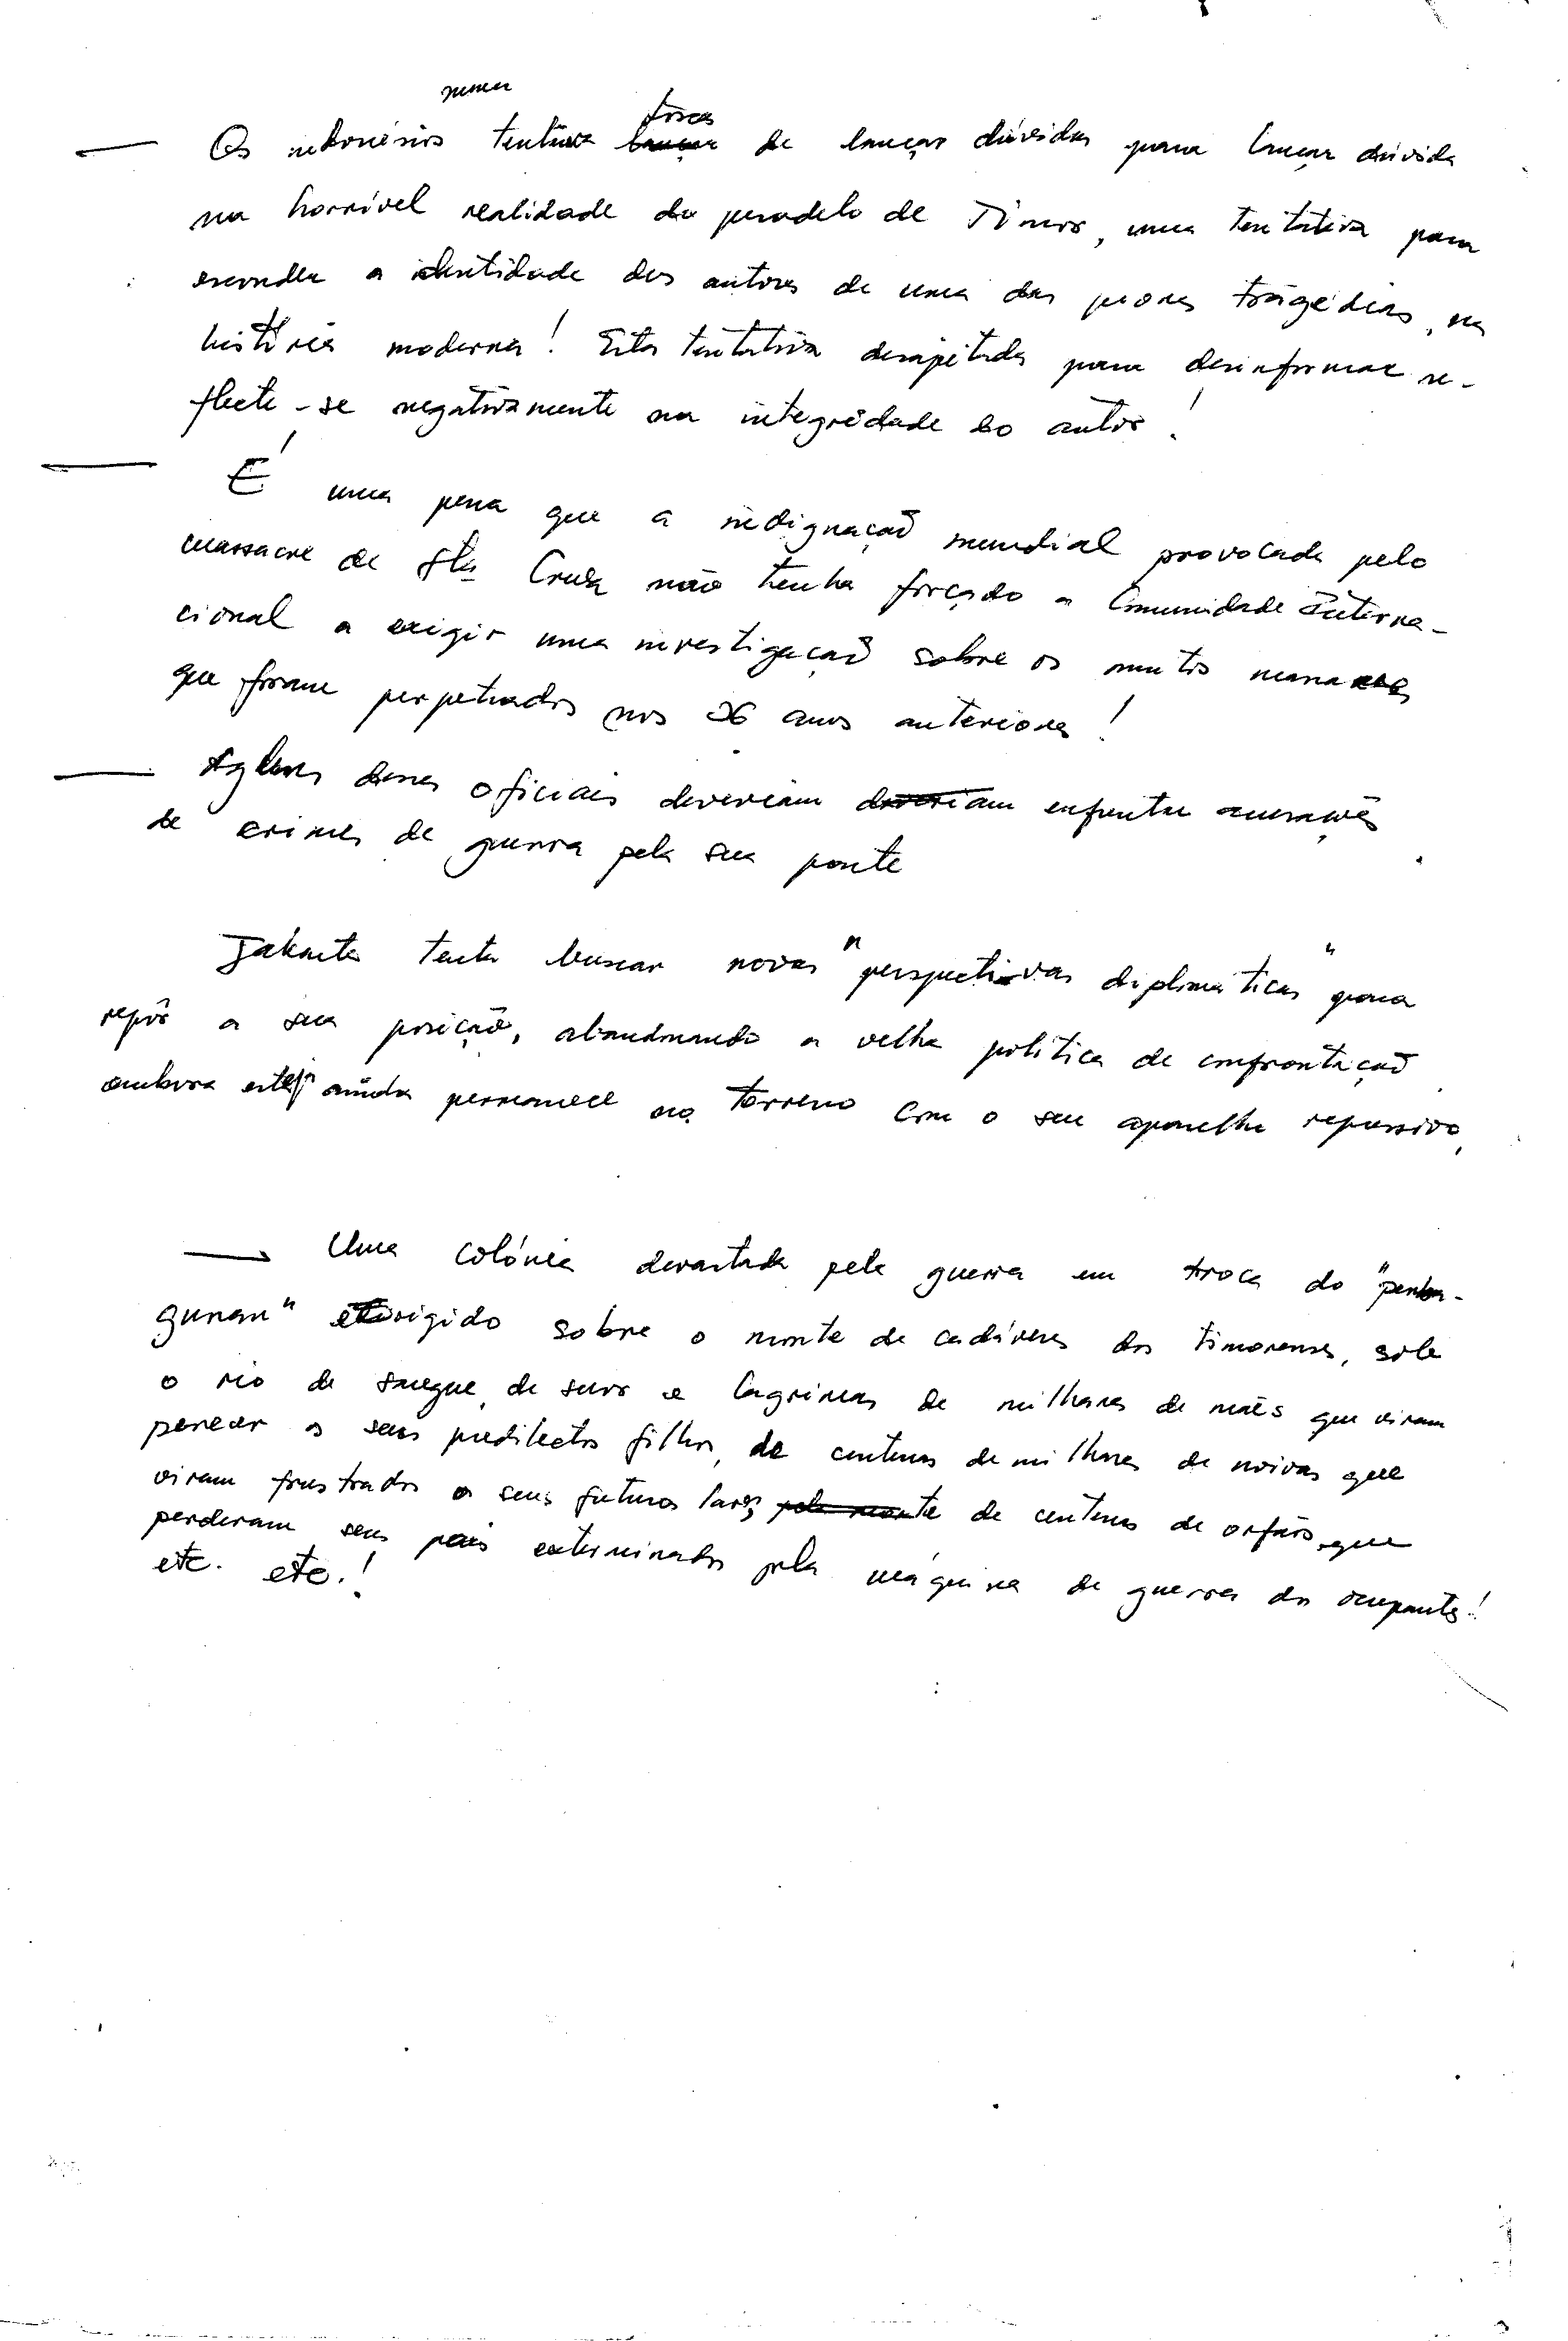 numa
tosca
— Os indonésios tentativa lançar de lançar dúvidas para lançar dúvida
na horrível realidade do pesadelo de Timor, uma tentativa para
esconder a identidade dos autores de uma das piores tragédias, na
história moderna! Esta tentativa para desinformar re-
flecte-se negativamente na integridade do autor!
— É uma pena que a indignação mundial provocada pelo
massacre de Sta Cruz não tenha forçado a Comunidade Interna-
cional a exigir uma investigação sobre os muitos
que foram perpetrados nos 16 anos anteriores!
— Alguns desses oficiais deveriam deveriam enfrentar acusações
de crimes de guerra pela sua parte
Jakarta tenta buscar novas "perspectivas diplomáticas" para
repôr a sua posição, abandonando a velha política de confrontação
embora esteja ainda permanece no terreno com o seu aparelho repressivo,
— Uma colónia devastada pela guerra em troca do "pemba-
gunan" erigido sobre o monte de cadáveres dos timorenses, sobre
o rio de sangue, de suor e lagrimas de milhares de mães que viram
perecer os seus predilectos filhos, de centenas de milhares de noivas que
viram frustrados os seus futuros lares, pela morte de centenas de orfãos, que
perderam seus pais exterminados pela máquina de guerra dos ocupantes!
etc. etc.!